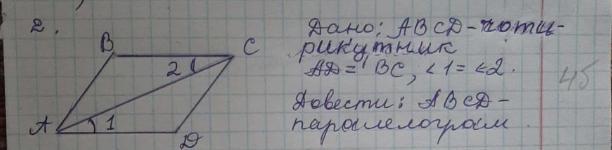 2.
Дано: ABCD-чоти-
рикутник
AD=BC, <1=<2.
Довести: ABCD-
паралелограм
B
C
2
A
1
D
45